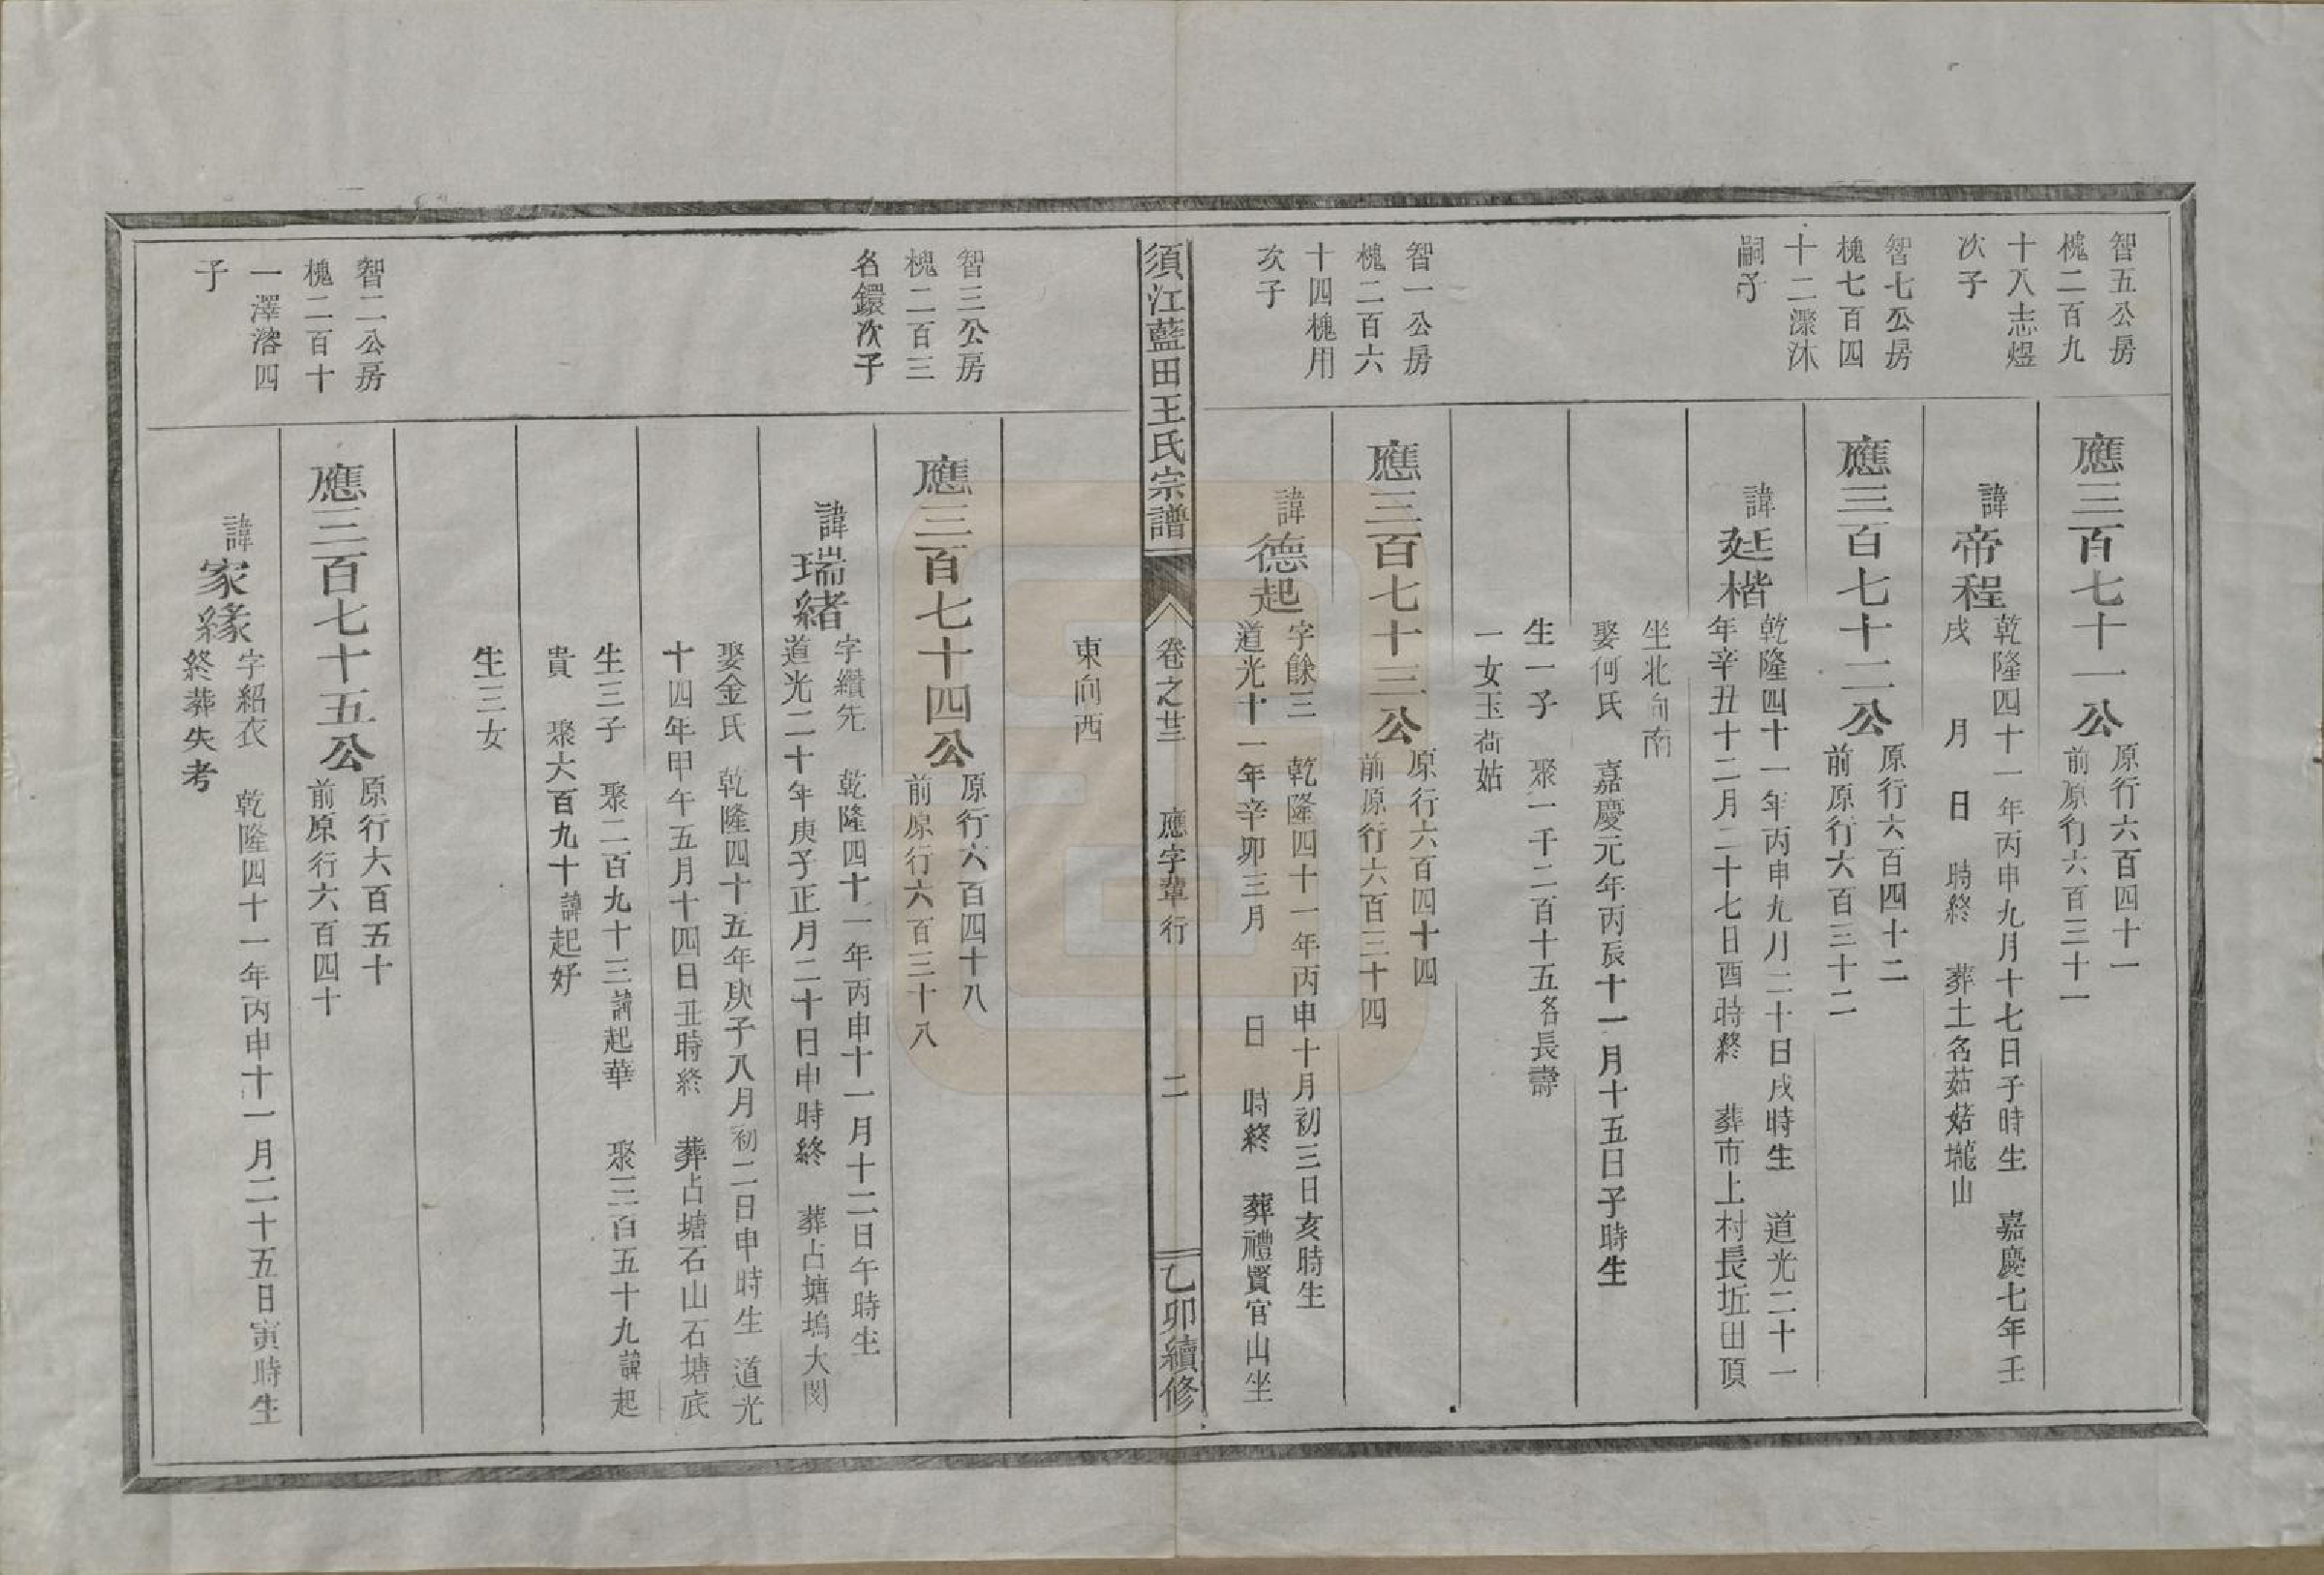 智五公房
槐二百九
十八志煜
次子
應三百七十一公
原行六百四十一
前原行六百三十一
諱帝程
乾隆四十一年丙申九月十七日子時生 嘉慶七年壬
戌 月 日 時終 葬土名茹姑壠山
智七公房
槐七百四
十二濴沐
嗣子
應三百七十二公
原行六百四十二
前原行六百三十二
諱延楷
乾隆四十一年丙申九月二十日戌時生 道光二十一
年辛丑十二月二十七日酉時終 葬市上村長坵田頂
坐北向南
娶何氏 嘉慶元年丙辰十一月十五日子時生
生一子 聚一千二百十五名長壽
一女玉荷姑
智一公房
槐二百六
十四槐用
次子
應三百七十三公
原行六百四十四
前原行六百三十四
諱德起
字餘三 乾隆四十一年丙申十月初三日亥時生
道光十一年辛卯三月 日 時終 葬禮賢官山坐
須江藍田王氏宗譜
卷之廿三 應字輩行 二
乙卯續修
東向西
智三公房
槐二百三
名鐶次子
應三百七十四公
原行六百四十八
前原行六百三十八
諱瑞緒
字纘先 乾隆四十一年丙申十一月十二日午時生
道光二十年庚子正月二十日申時終 葬占塘塢大閔
娶金氏 乾隆四十五年庚子八月初二日申時生 道光
十四年甲午五月十四日丑時終 葬占塘石山石塘底
生三子 聚二百九十三諱起華 聚三百五十九諱起
貴 聚六百九十諱起好
生三女
智二公房
槐二百十
一澤溶四
子
應三百七十五公
原行六百五十
前原行六百四十
諱家緣
字紹衣 乾隆四十一年丙申十一月二十五日寅時生
終葬失考